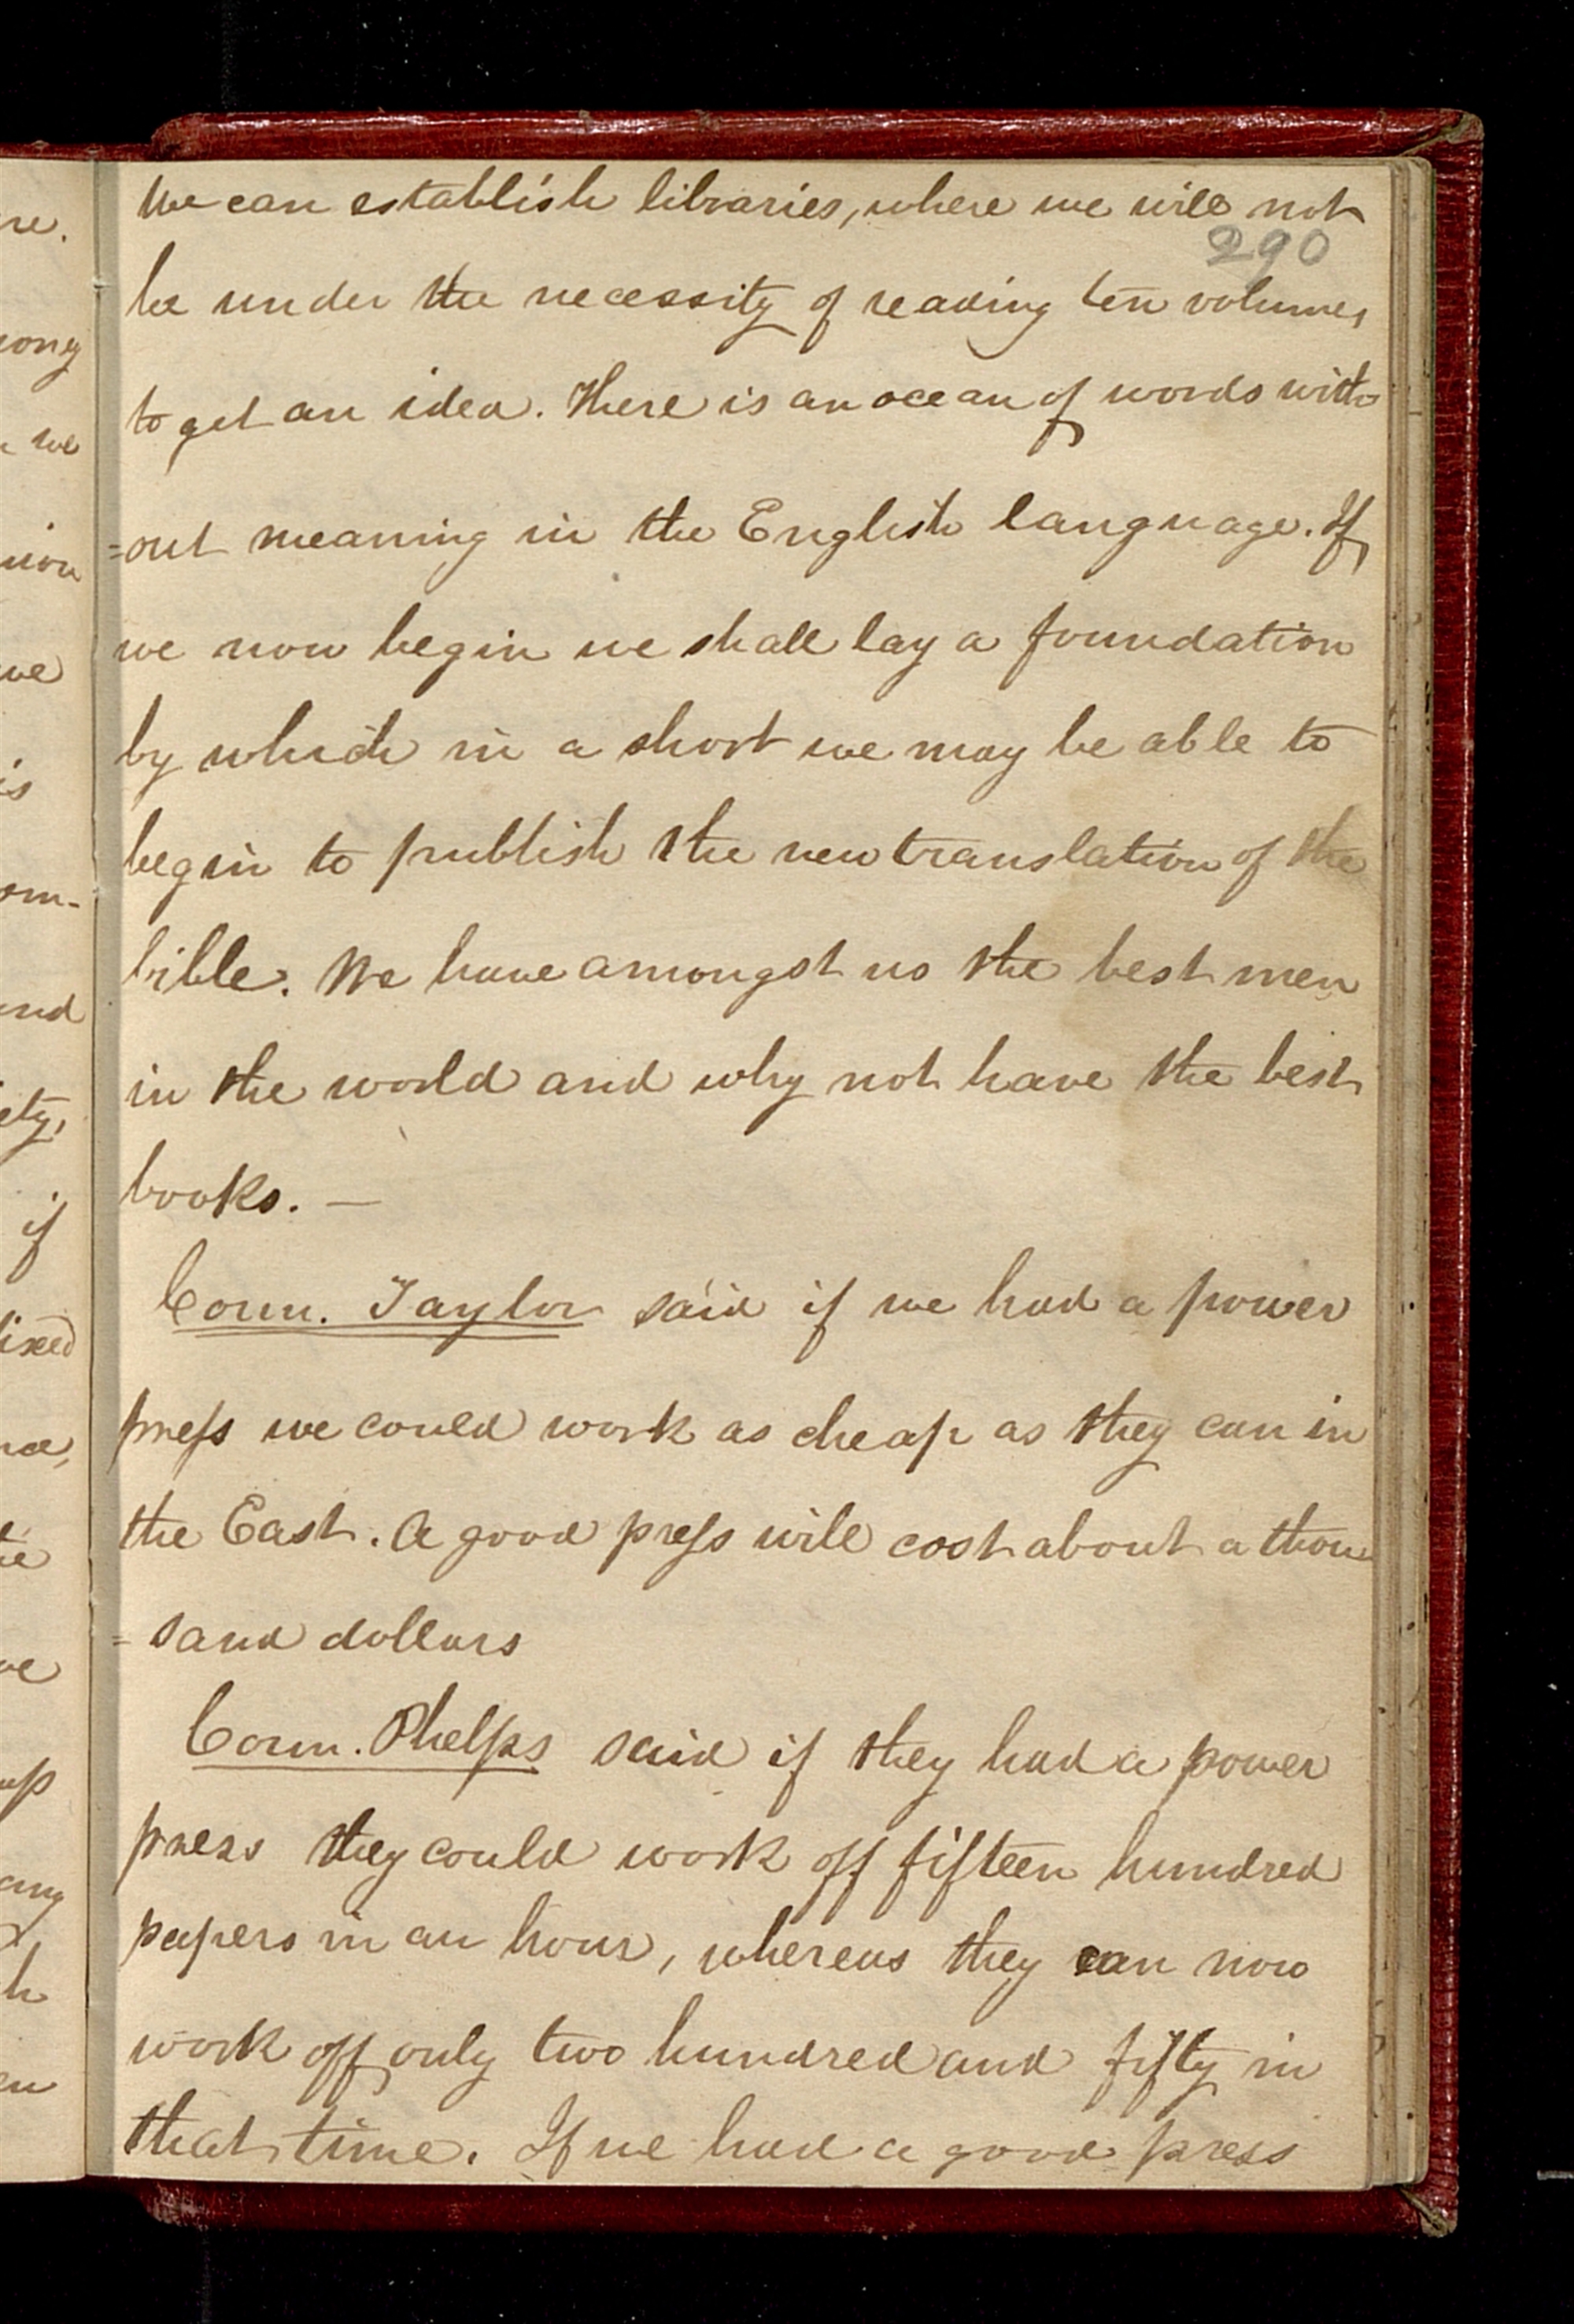 We can establish libraries, where we will not
290
be under the necessity of reading ten volumes
to get an idea. There is an ocean of words with
=out meaning in the English language. If
we now begin we shall lay a foundation
by which in a short we may be able to
begin to publish the new translation of the
bible. We have amongst us the best men
in the world and why not have the best
books. —
Coun. Taylor said if we had a power
press we could work as cheap as they can in
the East. A good press will cost about a thou
=sand dollars
Coun. Phelps said if they had a power
press they could work off fifteen hundred
papers in an hour, whereas they can now
work off only two hundred and fifty in
that time. If we had a good press